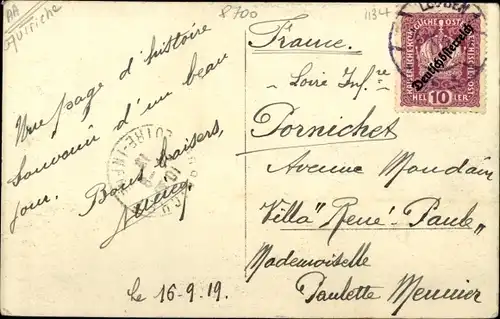 AA
Autriche
8700
1134
LEOBEN
KAISERLICHE KÖNIGLICHE ÖSTERREICHISCHE POST
Deutschösterreich
HELLER 10 HELLER
France.
Loire Infre
Pornichet
Avenue Mondain
Villa "René-Paule"
Mademoiselle
Paulette Meunier
Une page d'histoire
Souvenir d'un beau
jour.
Bons baisers,
LOIRE-INFRE
Le 16-9.19.